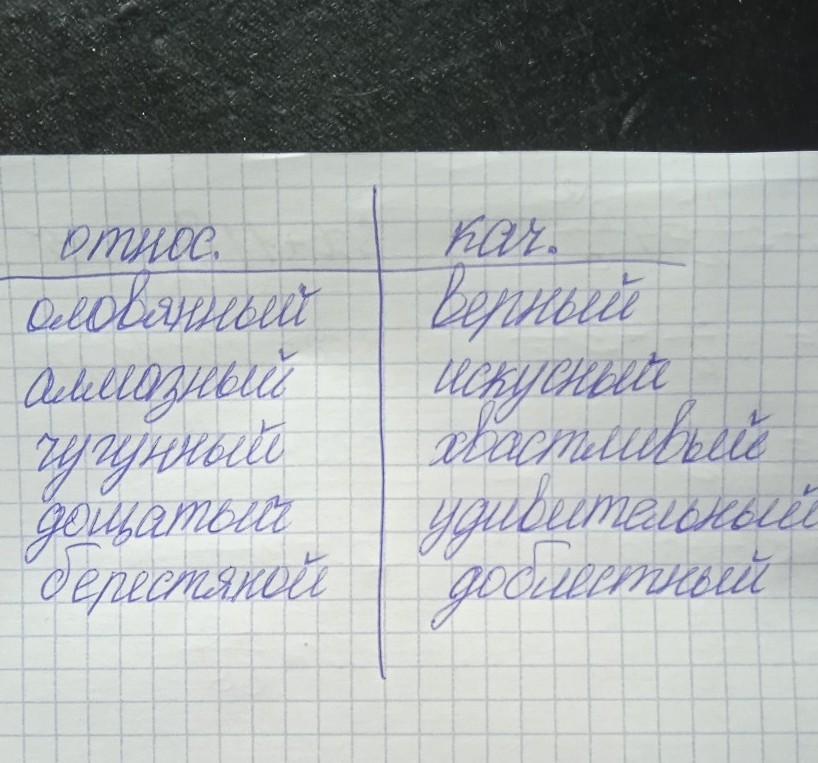 относ. кач.
оловянный верный
алмазный искусный
чугунный хвастливый
дощатый удивительный
берестяной доблестный